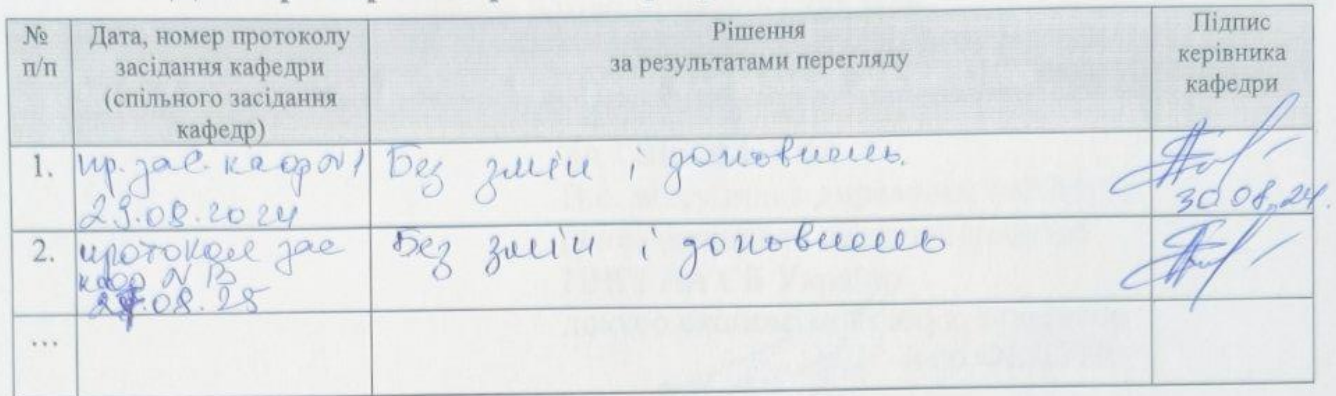 №
п/п
Дата, номер протоколу
засідання кафедри
(спільного засідання
кафедр)
Рішення
за результатами перегляду
Підпис
керівника
кафедри
1.
пр. зас. каф №1
29.08.2024
Без змін і доповнень.
30.08.24.
2.
протокол зас
каф N
.08.25
Без змін і доповнень
...